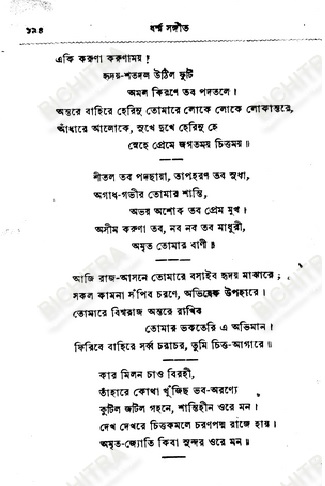 ১২৪
ধর্ম্ম সঙ্গীত
একি করুণা করুণাময়!
হৃদয়-শতদল উঠিল ফুটি
অমল কিরণে তব পদতলে।
অন্তরে বাহিরে হেরিনু তোমারে লোকে লোকে লোকান্তরে,
আঁধারে আলোকে, সুখে দুখে হেরিনু হে
স্নেহে প্রেমে জগতময় চিত্তময়॥
শীতল তব পদছায়া, তাপহরণ তব সুধা,
অগাধ-গভীর তোমার শান্তি,
অভয় অশোক তব প্রেম মুখ।
অসীম করুণা তব, নব নব তব মাধুরী,
অমৃত তোমার বাণী॥
আজি রাজ-আসনে তোমারে বসাইব হৃদয় মাঝারে;
সকল কামনা সঁপিব চরণে, অভিষেক উপহারে।
তোমারে বিশ্বরাজ অন্তরে রাখিব
তোমার ভকতেরি এ অভিমান।
ফিরিবে বাহিরে সর্ব্ব চরাচর, তুমি চিত্ত-আগারে॥
কার মিলন চাও বিরহী,
তাঁহারে কোথা খুঁজিছ ভব-অরণ্যে
কুটিল জটিল গহনে, শান্তিহীন ওরে মন।
দেখ দেখরে চিত্তকমলে চরণপদ্ম রাজে হায়।
অমৃত-জ্যোতি কিবা সুন্দর ওরে মন॥
BICHITRA